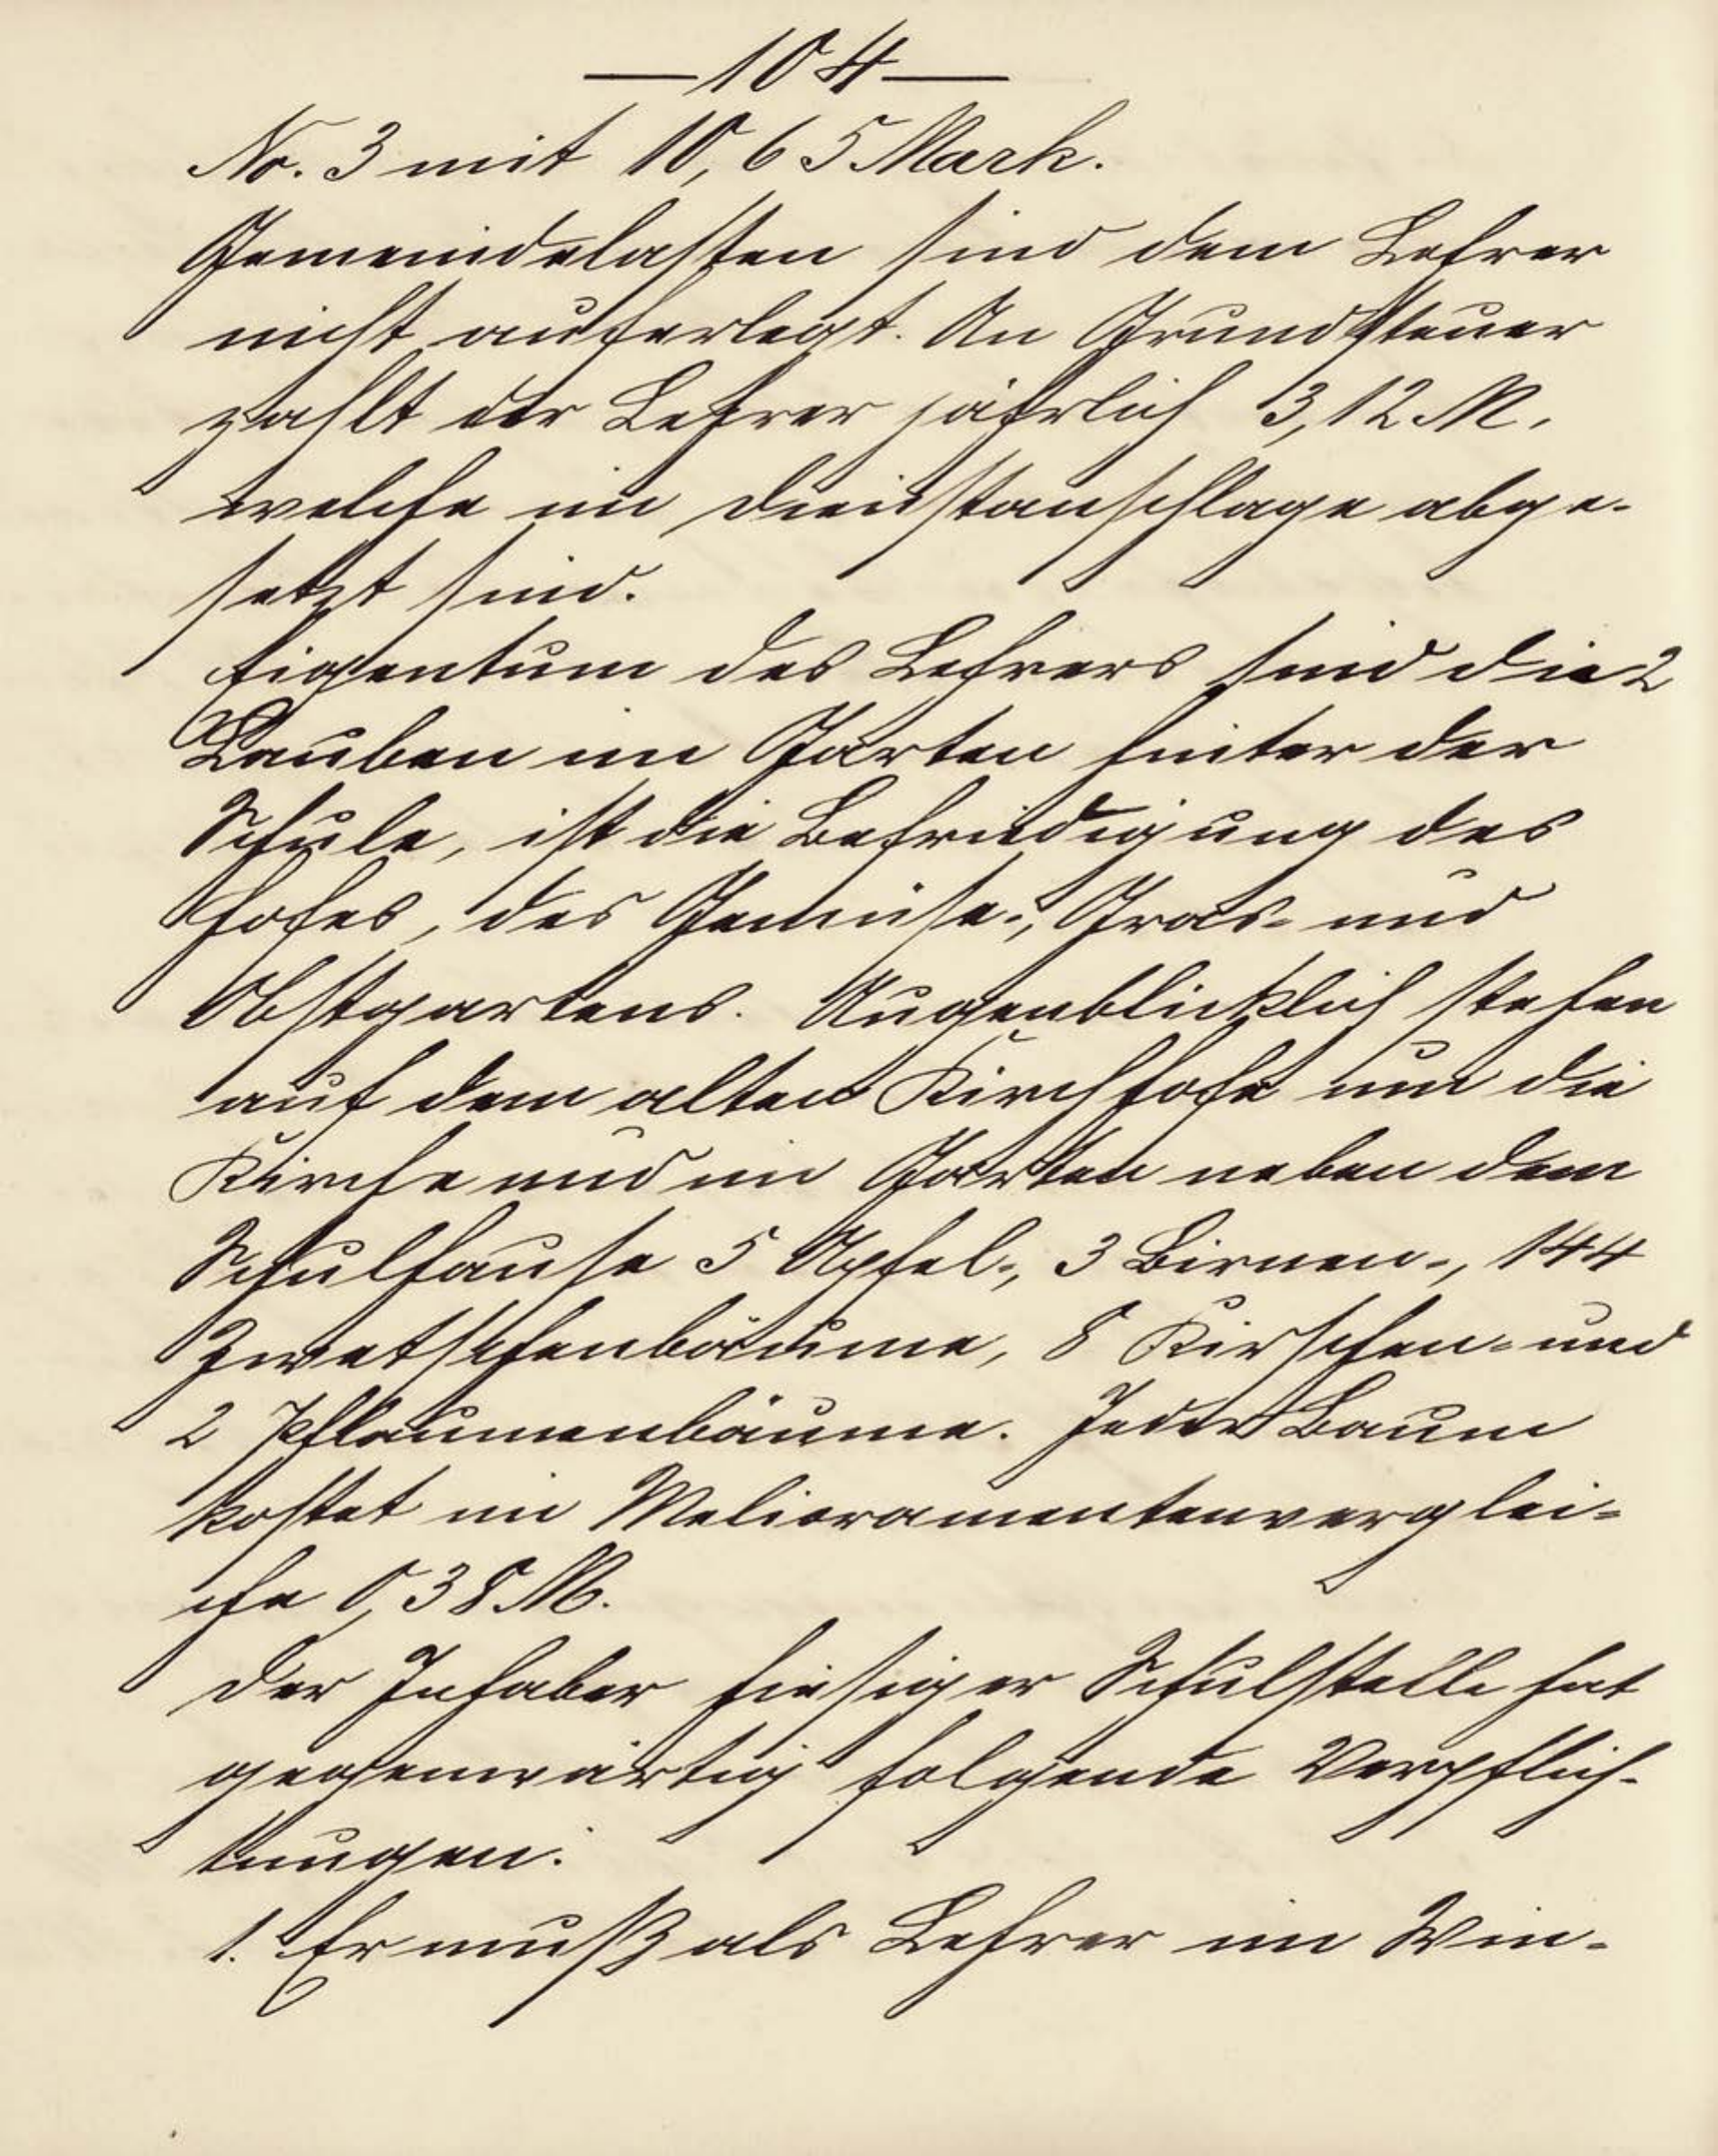 — 104 —
No. 3 mit 10,65 Mark.
Gemeindelasten sind dem Lehrer
nicht auferlegt. An Grundsteuer
zahlt der Lehrer jährlich 3,12 M,
welche im Dienstanschlage abge-
setzt sind.
Eigentum des Lehrers sind die 2
Lauben im Garten hinter der
Schule, ist die Befriedigung des
Hofes, des Gemüse-, Gras- und
Obstgartens. Augenblicklich stehen
auf dem alten Kirchhofe um die
Kirche und im Garten neben dem
Schulhause 5 Apfel-, 3 Birnen-, 144
Zwetschenbäume, 8 Kirschen- und
2 Pflaumenbäume. Jeder Baum
kostet im Melioramentenverglei-
che 0,38 M.
Der Inhaber hiesiger Schulstelle hat
gegenwärtig folgende Verpflich-
tungen:
1. Er muß als Lehrer im Win-